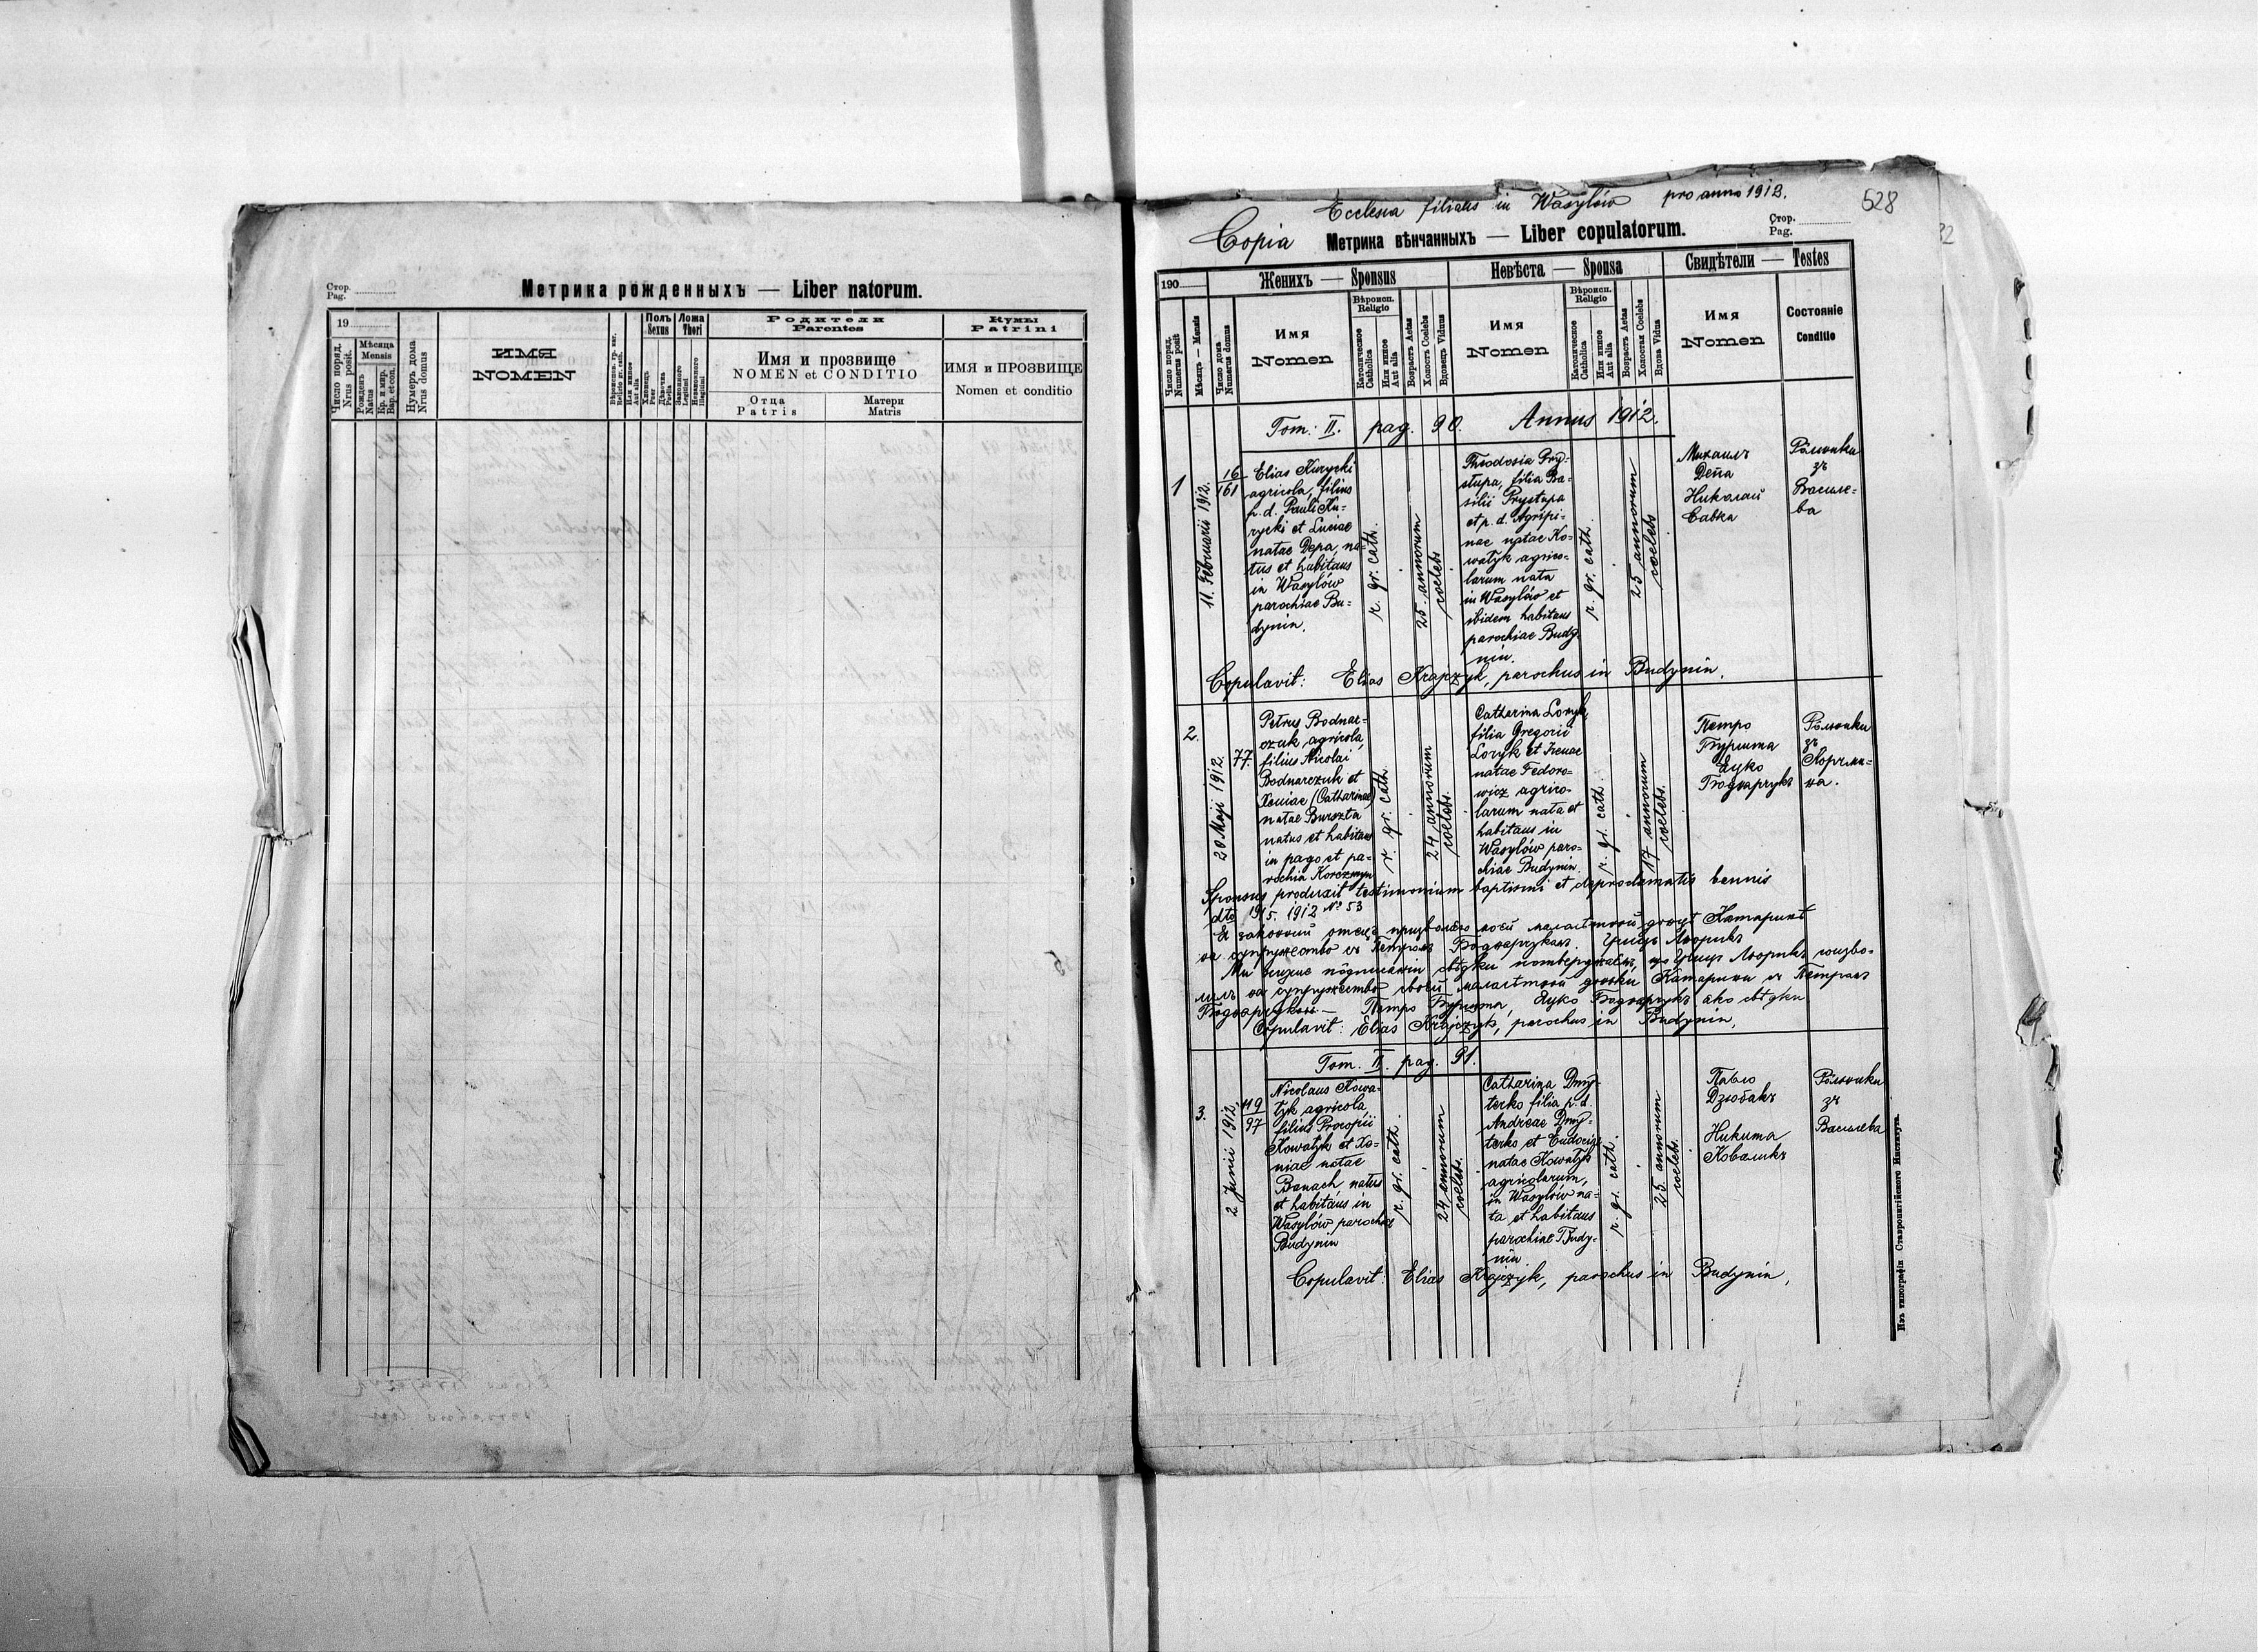 Стор.
Pag.
Метрика рожденныхъ — Liber natorum.
19
Число поряд.
Nrus posit.
Мѣсяца
Mensis
Рожденъ
Natus
Кр. и мир.
Bap. et con.
Нумеръ дома
Nrus domus
ИМЯ
NOMEN
Вѣроиспов. гр. кат.
Religio gr. cath.
Или иное
Aut alia
Полъ
Sexus
Хлопецъ
Puer
Дѣвочка
Puella
Ложа
Thori
Законного
Legitimi
Незаконного
Illegitimi
Родители
Parentes
Имя и прозвище
NOMEN et CONDITIO
Отца
Patris
Матери
Matris
Кумы
Patrini
ИМЯ и ПРОЗВИЩЕ
Nomen et conditio
Ecclesia filialis in Wasylów pro anno 1912.
528
Copia Метрика вѣнчанныхъ — Liber copulatorum.
Стор.
Pag.
190
Женихъ — Sponsus
Невѣста — Sponsa
Свидѣтели — Testes
Число поряд.
Numerus posit
Мѣсяць — Mensis
Число дома
Numerus domus
Имя
Nomen
Вѣроисп.
Religio
Католическое
Catholica
Или иное
Aut alia
Возрастъ Aetas
Холостъ Coelebs
Вдовецъ Viduus
Имя
Nomen
Вѣроисп.
Religio
Католическое
Catholica
Или иное
Aut alia
Возрастъ Aetas
Холостая Coelebs
Вдова Vidua
Имя
Nomen
Состояніе
Conditio
Tom: II. pag. 90. Annus 1912.
1
11. Februarii 1912.
16
161
Elias Kurycki
agricola, filius
p. d. Pauli Ku-
rycki et Luciae
natae Depa, na-
tus et habitans
in Wasylów
parochiae Bu-
dynin.
r. gr. cath.
25. annorum
coelebs
Theodosia Pry-
stupa, filia Ba-
silii Prystupa
et p. d. Agripi-
nae natae Ko-
watyk agrico-
larum nata
in Wasylów et
ibidem habitans
parochiae Budy-
nin.
r. gr. cath.
25 annorum
coelebs
Михаилъ
Депа
Николай
Савка
Рôльники
зъ
Василе-
ва
Copulavit: Elias Krajczyk, parochus in Budynin.
2.
20 Maji 1912.
77
Petrus Bodnar-
czuk, agricola,
filius Nicolai
Bodnarczuk et
Xeniae (Catharinae)
natae Burszta
natus et habitans
in pago et pa-
rochia Korczmyn
r. gr. cath.
24 annorum
coelebs.
Catharina Loryk,
filia Gregorii
Loryk et Irenae
natae Fedoro-
wicz agrico-
larum nata et
habitans in
Wasylów paro-
chiae Budynin.
r. gr. cath.
17 annorum
coelebs.
Петро
Буршта
Луко
Боднарчукъ
Рôльники
зъ
Корчми-
на.
Sponsus produxit testimonium baptismi et deproclamatis bannis
dto 19/5. 1912 № 53
Я законний отець призволяю моєй малолѣтной доньцѣ Катаринѣ
на супружество съ Петромъ Боднарчукомъ. Грицъ Лорикъ
Ми нижше пôдписаніи свѣдки потверджаємъ, що Грицъ Лорикъ соизво-
лилъ на супружество своєй малолѣтной доньки Катарини съ Петромъ
Боднарчукомъ — Петро Буршта, Луко Боднарчукъ яко свѣдки
Copulavit: Elias Krajczyk, parochus in Budynin.
Tom. II. pag. 91.
3.
2 Junii 1912.
119
97
Nicolaus Kowa-
tyk agricola,
filius Procopii
Kowatyk et Xe-
niae natae
Banach natus
et habitans in
Wasylów parochiae
Budynin
r. gr. cath.
24 annorum
coelebs.
Catharina Dmy-
terko filia p. d.
Andreae Dmy-
terko et Eudociae
natae Kowatyk
agricolarum,
in Wasylów na-
ta et habitans
parochiae Budy-
nin
r. gr. cath.
25 annorum
coelebs.
Павло
Дзюбакъ
Никита
Коваликъ
Рôльники
зъ
Василева
Copulavit: Elias Krajczyk, parochus in Budynin.
Изъ типографіи Ставропигійского Института.